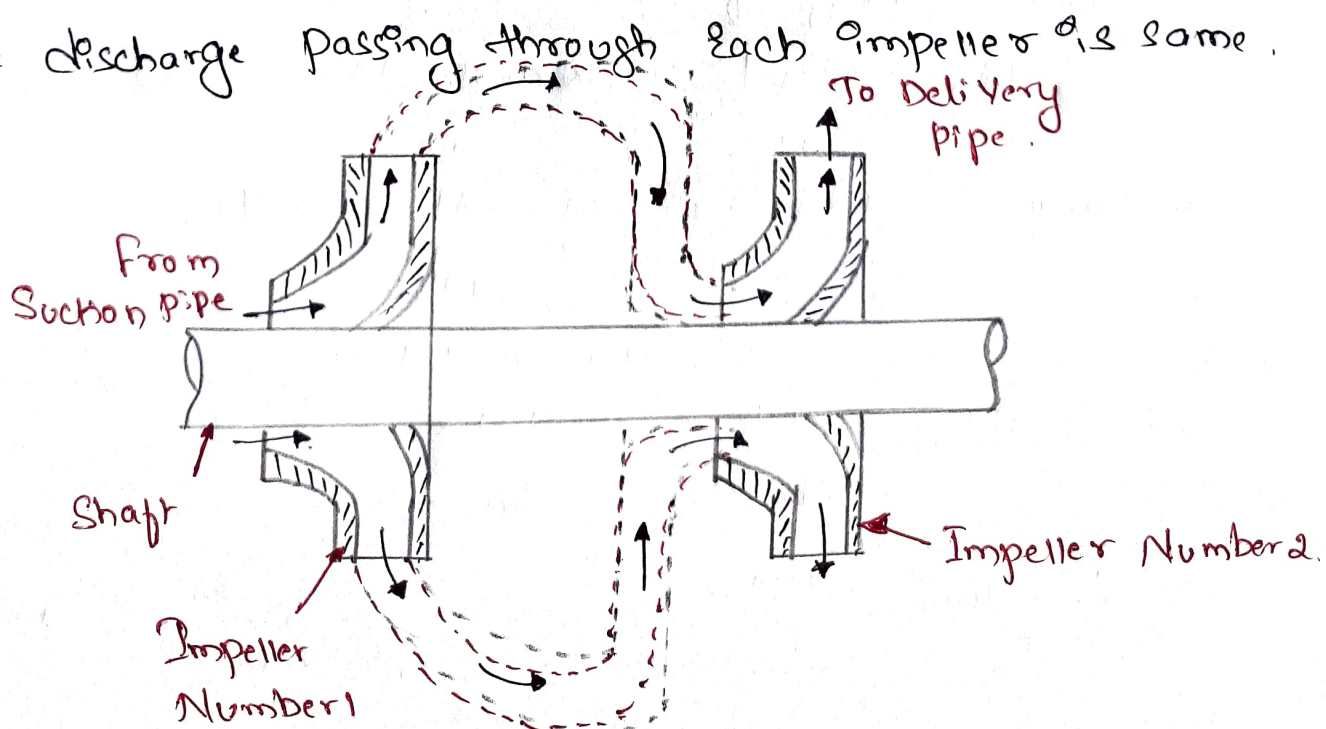 discharge passing through each impeller is same.
To Delivery
pipe.
From
Suction pipe
Shaft
Impeller Number 2.
Impeller
Number 1